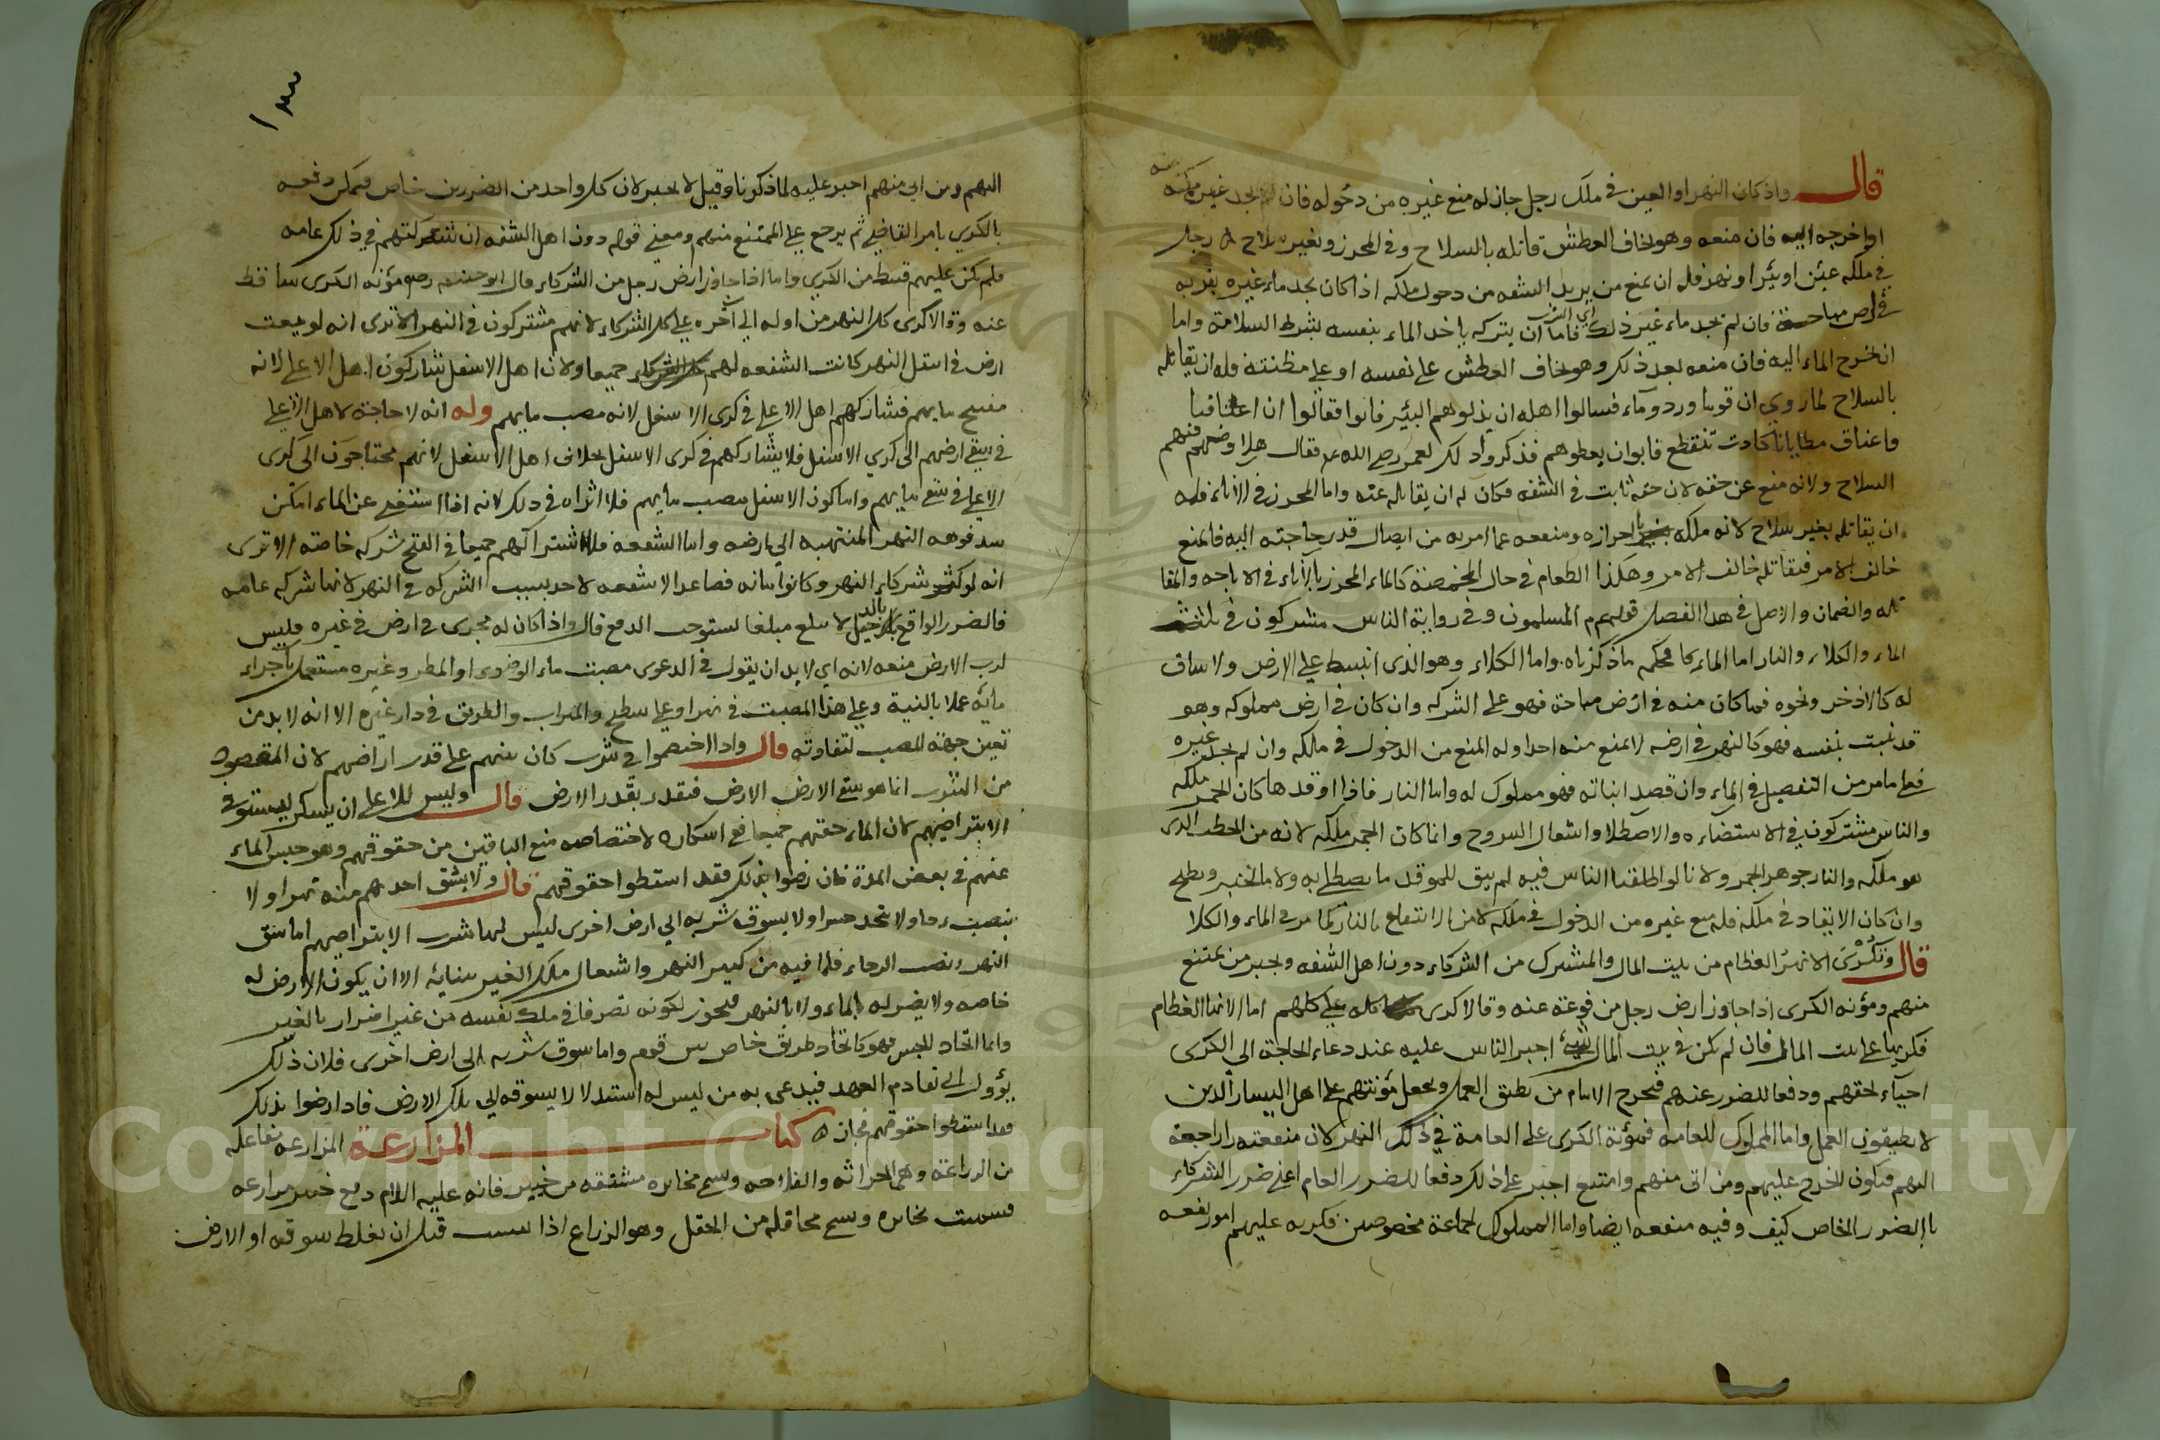 قال واذ كان النهر او العين في ملك رجل جاز له منع غيره من دخوله فان لم يجد غيره مكنه منه
او اخرجه اليه فان منعه وهو يخاف العطش قاتله بالسلاح وفي المحرز بغير سلاح رجل
في ملكه عين او بئر او نهر فله ان يمنع من يريد الشفه من دخول ملكه اذا كان يجد ماء غيره بقربه
في ارض مباحة فان لم يجد ماء غير ذلك فاما ان يتركه ياخد الماء بنفسه بشرط السلامة واما
اي النهر
ان يخرج الماء اليه فان منعه بعد ذلك وهو يخاف العطش على نفسه او على مطيته فله ان يقاتله
بالسلاح لما روي ان قوما وردوا ماء فسالوا اهله ان يدلوهم البئر فابوا فقالوا ان اعناقنا
واعناق مطايانا كادت تنقطع فابوا ان يعطوهم فذكروا ذلك لعمر رضي الله عنه فقال هلا وضعتم فيهم
السلاح ولانه منع عن حقه لان حقه ثابت في الشفه فكان له ان يقاتله عنه واما المحرز في الاناء فله
ان يقاتله بغير سلاح لانه ملكه باحرازه ومنعه عما امر به من ايصال قدر حاجته اليه فالمنع
خالف الامر فيقاتله خالف الامر وهكذا الطعام في حال المخمصة كالماء المحرز بالاناء في الاباحه والمقا
تله والضمان والاصل في هذا الفصل قوله عم المسلمون وفي رواية الناس مشتركون في ثلث
الماء والكلاء والنار اما الماء فحكمه ما ذكرناه واما الكلاء وهو الذى انبسط على الارض ولا ساق
له كالاذخر ونحوه فما كان منه في ارض مباحة فهو على الشركه وان كان في ارض مملوكه وهو
قد نبت بنفسه فهو كالنهر في ارضه لا يمنع منه احد وله المنع من الدخول في ملكه وان لم يجد غيره
فعلى ما مر من التفصيل في الماء وان قصد انباته فهو مملوك له واما النار فاذا اوقدها كان الجمر ملكه
والناس مشتركون في الاستضاءه والاصطلا واشعال السروج وانما كان الجمر ملكه لانه من الحطب الذى
هو ملكه والنار جوهر الجمر ولانا لو اطلقنا الناس فيه لم يبق للموقد ما يصطلي به ولا ما يخبز ويطبخ
وان كان الايقاد في ملكه فله منع غيره من الدخول في ملكه لا من الانتفاع بالنار كما مر في الماء والكلا
قال وتكرى الانهر العظام من بيت المال والمشترك من الشركاء دون اهل الشفه ويجبر من يمتنع
منهم ومؤنه الكرى اذا جاوز ارض رجل من فوهته عنه وقالا كرى كله على كلهم اما الانهار العظام
فكريها على بيت المال فان لم يكن في بيت المال شيء اجبر الناس عليه عند دعاء الحاجة الى الكرى
احياء لحقهم ودفعا للضرر عنهم فيخرج الامام من يطيق العمل ويجعل مؤنتهم على اهل اليسار الذين
لا يطيقون العمل واما المملوك للعامه فمؤنة الكرى على العامة في ذلك النهر لان منفعته راجعة
اليهم فيكون الخرج عليهم ومن ابى منهم وامتنع اجبر على ذلك دفعا للضرر العام اعني ضرر الشركاء
بالضرر الخاص كيف وفيه منفعه ايضا واما المملوك لجماعة مخصوصين فكريه عليهم لعود نفعه
١٣
اليهم ومن ابى منهم اجبر عليه لما ذكرنا وقيل لا يجبر لان كل واحد من الضررين خاص فيمكن دفعه
بالكرى بامر القاضي ثم يرجع على الممتنع منهم ومعنى قوله دون اهل الشفه ان شركتهم في ذلك عامه
فلم يكن عليهم قسط من الكرى واما اذا جاوز ارض رجل من الشركاء قال ابو حنيفه رضه مؤنه الكرى ساقط
عنه وقالا كرى كل النهر من اوله الى آخره على كل الشركاء لانهم مشتركون في النهر الا ترى انه لو بيعت
ارض في اسفل النهر كانت الشفعه لهم جميعا ولان اهل الاسفل شاركون اهل الاعلى لانه
مفتح مايهم فشاركهم اهل الاعلى في كرى الاسفل لانه مصب مايهم وله انه لا حاجة لاهل الاعلى
في سقي ارضهم الى كرى الاسفل فلا يشاركهم في كرى الاسفل بخلاف اهل الاسفل لانهم محتاجون الى كرى
الاعلى في سقي مايهم واما كون الاسفل مصب مايهم فلا اثر له في ذلك لانه اذا استغنى عن الماء امكن
سد فوهه النهر المنتهيه الى ارضه واما الشفعه فلاشتراكهم جميعا في الفتح شركه خاصه الا ترى
انه لو كثر شركاء النهر وكانوا مائه فصاعدا لا شفعه لاحد بسبب الشركه في النهر لانها شركه عامه
فالضرر الواقع بالدخيل لا يبلغ مبلغا يستوجب الدفع قال واذا كان له مجرى في ارض في غيره فليس
لرب الارض منعه لانه اى لا بد ان يقول في الدعوى مصب ماء الوضوء او المطر وغيره مستعمل باجراء
مايه عملا بالنية وعلى هذا المصب في نهر او على سطح والميزاب والطريق في دار غيره الا انه لا بد من
تعين جهة المصب لتفاوته قال واذا اختصموا في شرب كان بينهم على قدر اراضهم لان المقصود
من الشرب انما هو سقي الارض فيقدر بقدر الارض قال وليس للاعلى ان يسكر ليستوفي
الا بتراضيهم لان الماء حقهم جميعا ففي اسكاره لاختصاصه منع الباقين من حقوقهم وهو حبس الماء
عنهم في بعض المدة فان رضوا بذلك فقد اسقطوا حقوقهم قال ولا يشق احدهم منه نهرا ولا
ينصب رحا ولا يتخد جسرا ولا يسوق شربه الى ارض اخرى ليس لها شرب الا بتراضيهم اما شق
النهر ونصب الرحاء فلما فيه من كسر النهر واشتغال ملك الغير ببنايه الا ان يكون الارض له
خاصه ولا يضر له بالماء ولا بالنهر فيجوز لكونه تصرفا في ملك نفسه من غير اضرار بالغير
واما اتخاد الجسر فهو كاتخاد طريق خاص بين قوم واما سوق شربه الى ارض اخرى فلان ذلك
يؤول الى تقادم العهد فيدعى به من ليس له استدلالا بسوقه الى تلك الارض فاذا رضوا بذلك
فقد اسقطوا حقوقهم فجاز ه كتاب المزارعة المزارعه مفاعله
من الزراعة وهي الحراثه والفلاحه وسمي مخابره مشتقه من خيبر فانه عليه السلام دفع خيبر مزارعه
فسميت مخابره وسمي محاقله من الحقل وهو الزراع اذا تشعب قبل ان يغلظ سوقه او الارض
Copyright © King Saud University